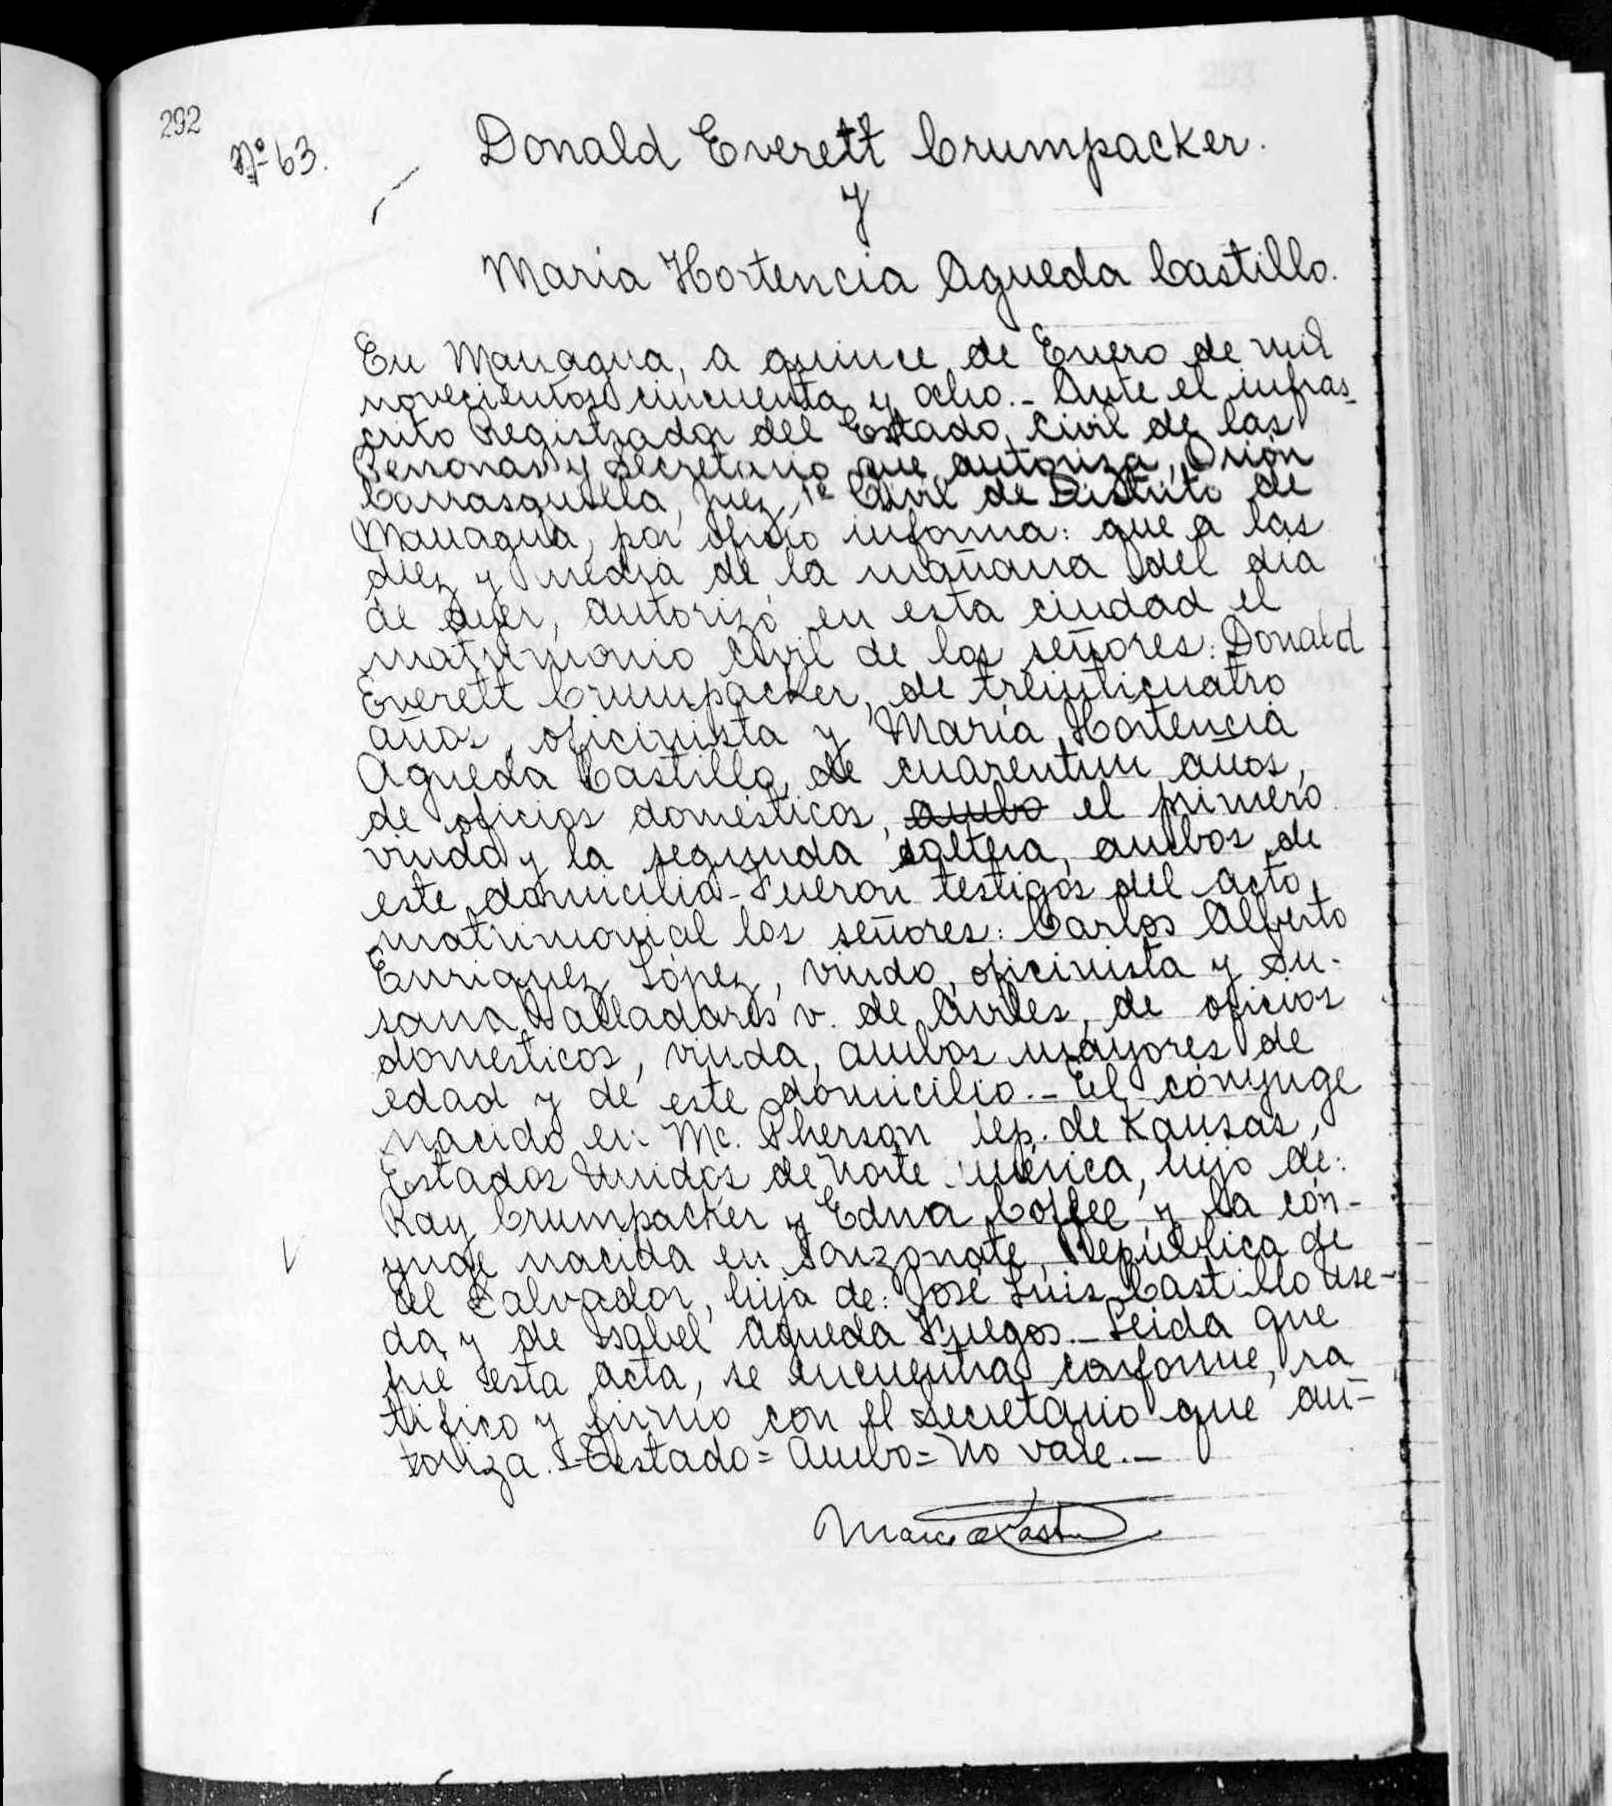 292
Nº 63.
Donald Everett Crumpacker.
y
María Hortencia Agueda Castillo.
En Managua, a quince de Enero de mil
novecientos cincuenta y ocho.- Ante el infras-
crito Registrador del Estado Civil de las
Personas y Secretario que autoriza, Orión
Carrasquilla, Juez 1º Civil de Distrito de
Managua, por oficio informa: que a las
diez y media de la mañana del día
de ayer, autorizó en esta ciudad el
matrimonio civil de los señores: Donald
Everett Crumpacker, de treinticuatro
años, oficinista y María Hortencia
Agueda Castillo, de cuarentiun años,
de oficios domésticos, ambo el primero
viudo y la segunda soltera, ambos de
este domicilio- Fueron testigos del acto
matrimonial los señores: Carlos Alberto
Enriquez López, viudo, oficinista y Su-
sana Valladares v. de Aviles, de oficios
domésticos, viuda, ambos mayores de
edad y de este domicilio.- El cónyuge
nacido en Mc. Pherson rep. de Kansas,
Estados Unidos de Norte América, hijo de:
Ray Crumpacker y Edna Coffee y la cón-
yuge nacida en Sonzonate, República de
El Salvador, hija de: José Luis Castillo Use-
da y de Isabel Agueda Fuegos.- Leida que
fue esta acta, se encuentra conforme, ra
tifico y firmo con el Secretario que au-
toriza.- Testado = Ambo = No vale.-